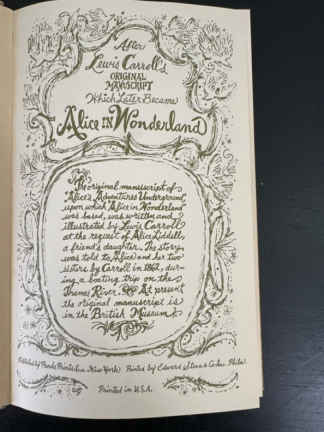 After
Lewis Carroll's
ORIGINAL
MANUSCRIPT
Which Later Became
Alice IN Wonderland
The original manuscript of
Alice's Adventures Underground,
upon which Alice in Wonderland
was based, was written and
illustrated by Lewis Carroll
at the request of Alice Liddell,
a friend's daughter. The story
was told to Alice and her two
sisters by Carroll in 1862, dur-
ing a boating trip on the
Thames River. At present
the original manuscript is
in the British Museum
Published by Panda Prints Inc. New York. Printed by Edward Stern & Co. Inc. Phila.
Printed in U.S.A.